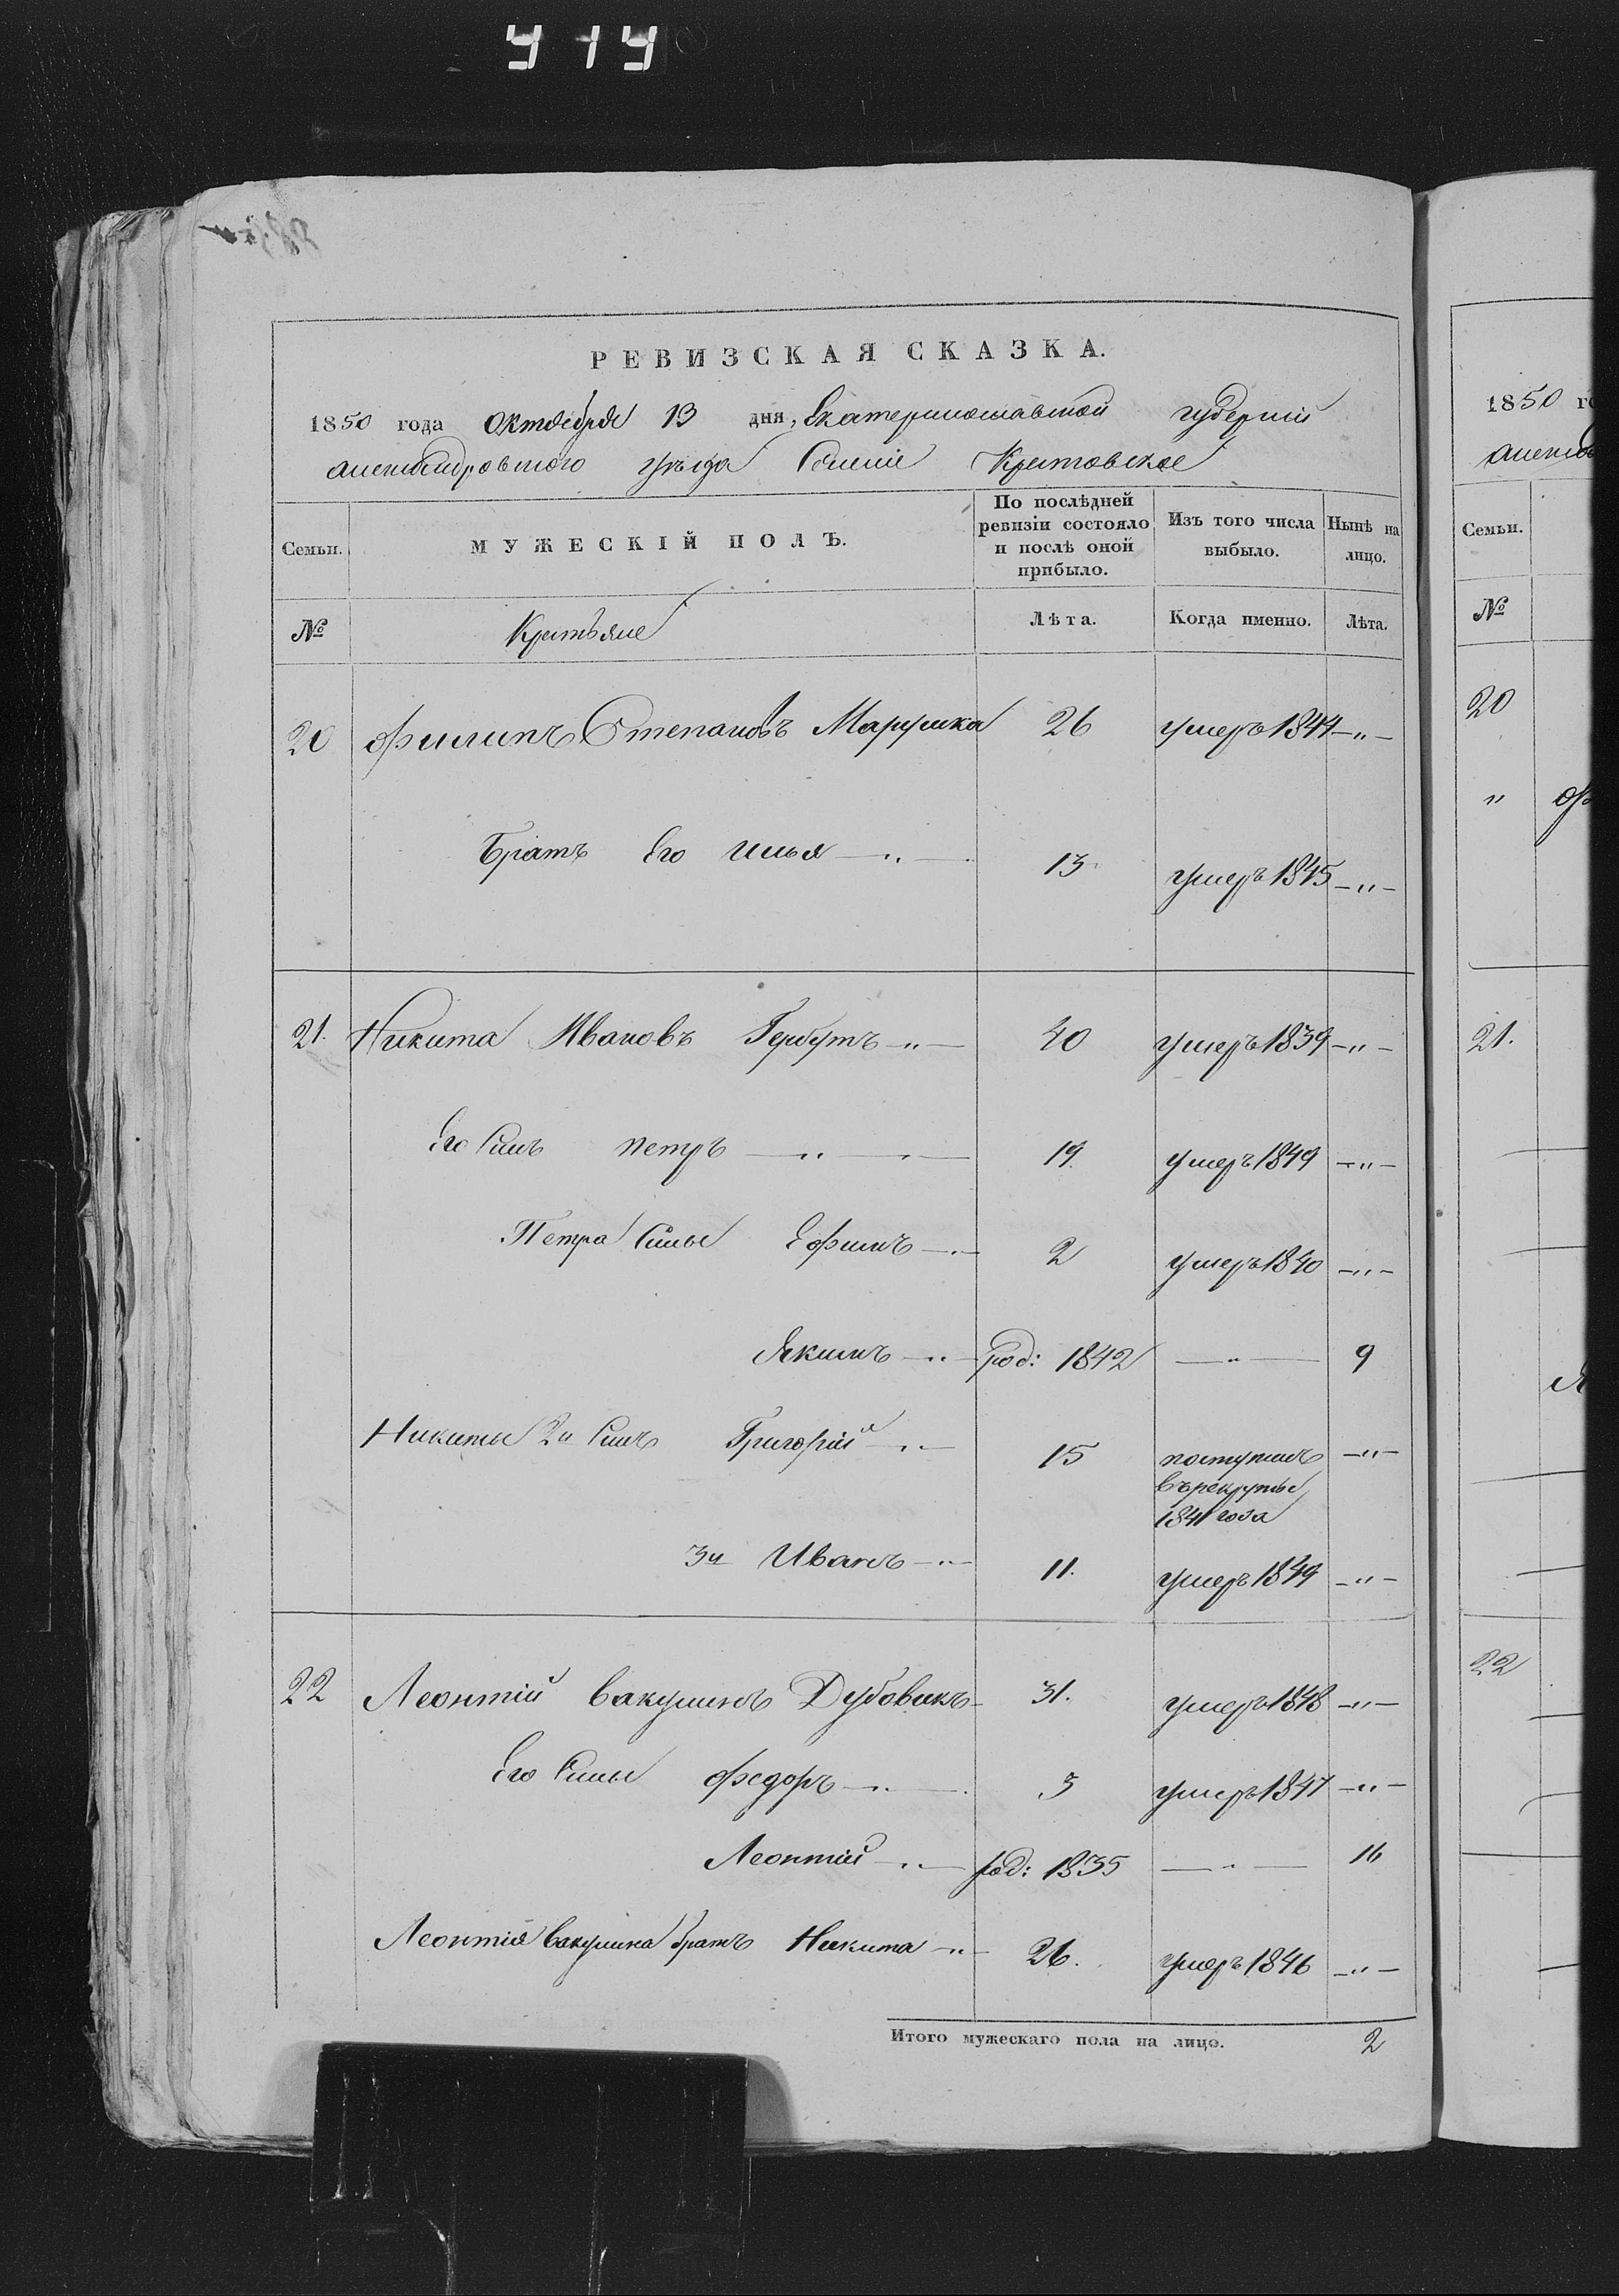 РЕВИЗСКАЯ СКАЗКА.
1850 года Октября 13 дня, Екатеринославской губерніи
александровского уезда Селеніе
Семьи. МУЖЕСКІЙ ПОЛЪ. По послѣдней ревизіи состояло и послѣ оной прибыло. Изъ того числа выбыло. Нынѣ на лицо.
№ Крестьяне Лѣта. Когда именно. Лѣта.
20 Филипъ Степановъ Марушка 26 умеръ 1844 —"—
Братъ Его Илья —"— 13 умеръ 1845 —"—
21. Никита Ивановъ —"— 40 умеръ 1839 —"—
Его Синъ петръ —"— 19. умеръ 1849 —"—
Петра Сины Ефимъ —"— 2 умеръ 1840 —"—
Якимъ —"— род: 1842 —"— 9
Никиты 2й Синъ Григорій —"— 15 поступилъ —"—
въ рекруты
1841 года
3й Иванъ —"— 11. умеръ 1849 —"—
22 Леонтій Вакулинъ Дубовикъ 31. умеръ 1848 —"—
Его Сины Федоръ —"— умеръ 1847 —"—
Леонтій —"— род: 1835 —"— 16
Леонтія Вакулина братъ Никита —"— 26. умеръ 1846 —"—
Итого мужескаго пола на лицо. 2
1850
Семьи.
№
20
"
21.
22